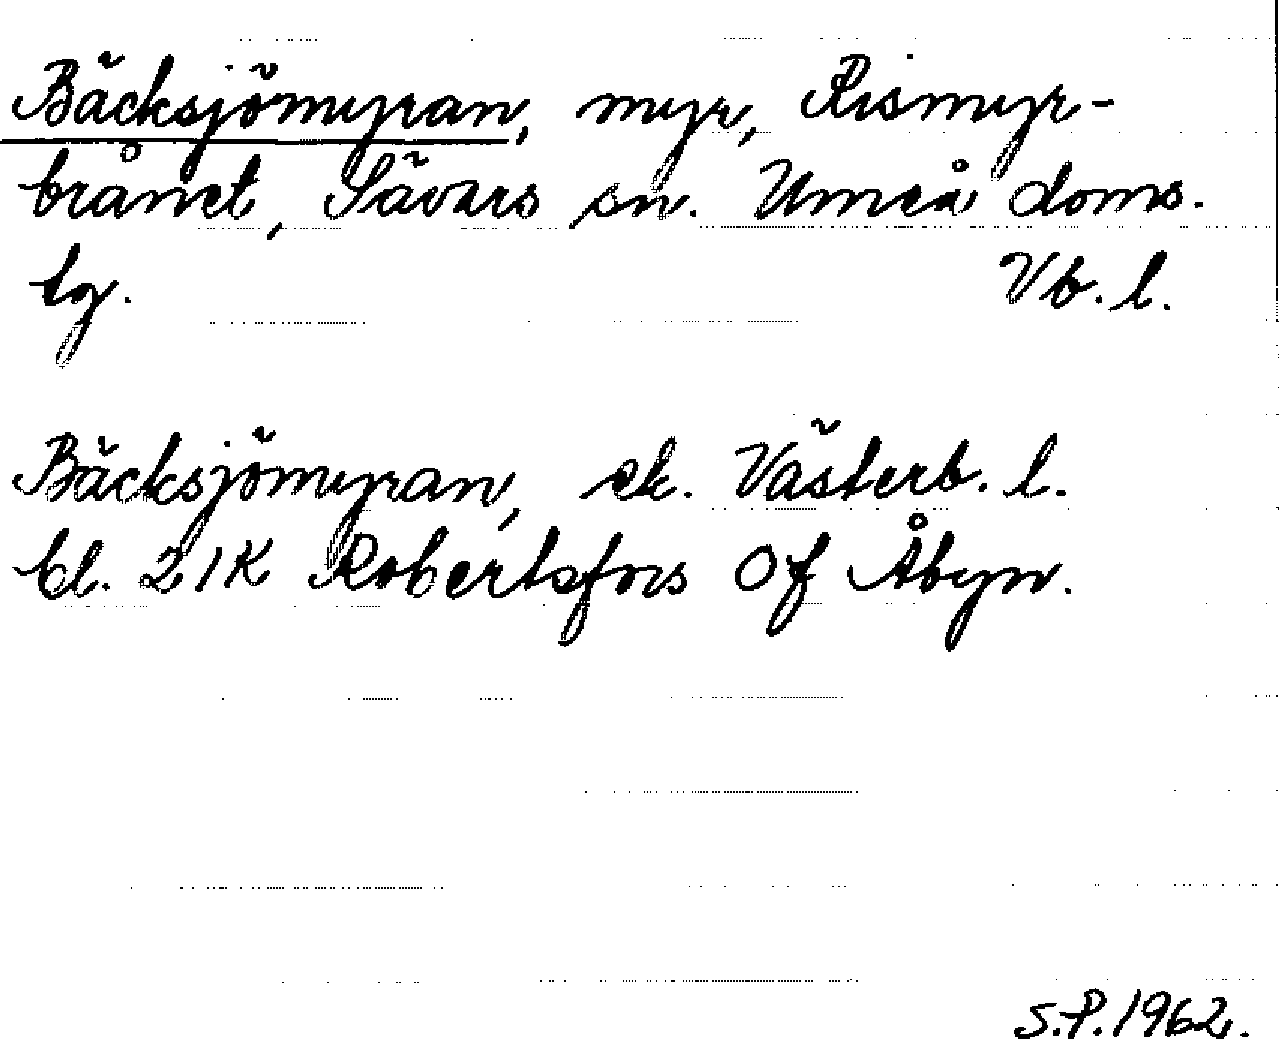 Bäcksjömyran, myr, Rismyr-
brånet, Sävars sn. Umeå doms.
tg. Vb. l.
Bäcksjömyran, ek. Västerb. l.
bl. 21K Robertsfors Of Åbyn.
S.P. 1962.